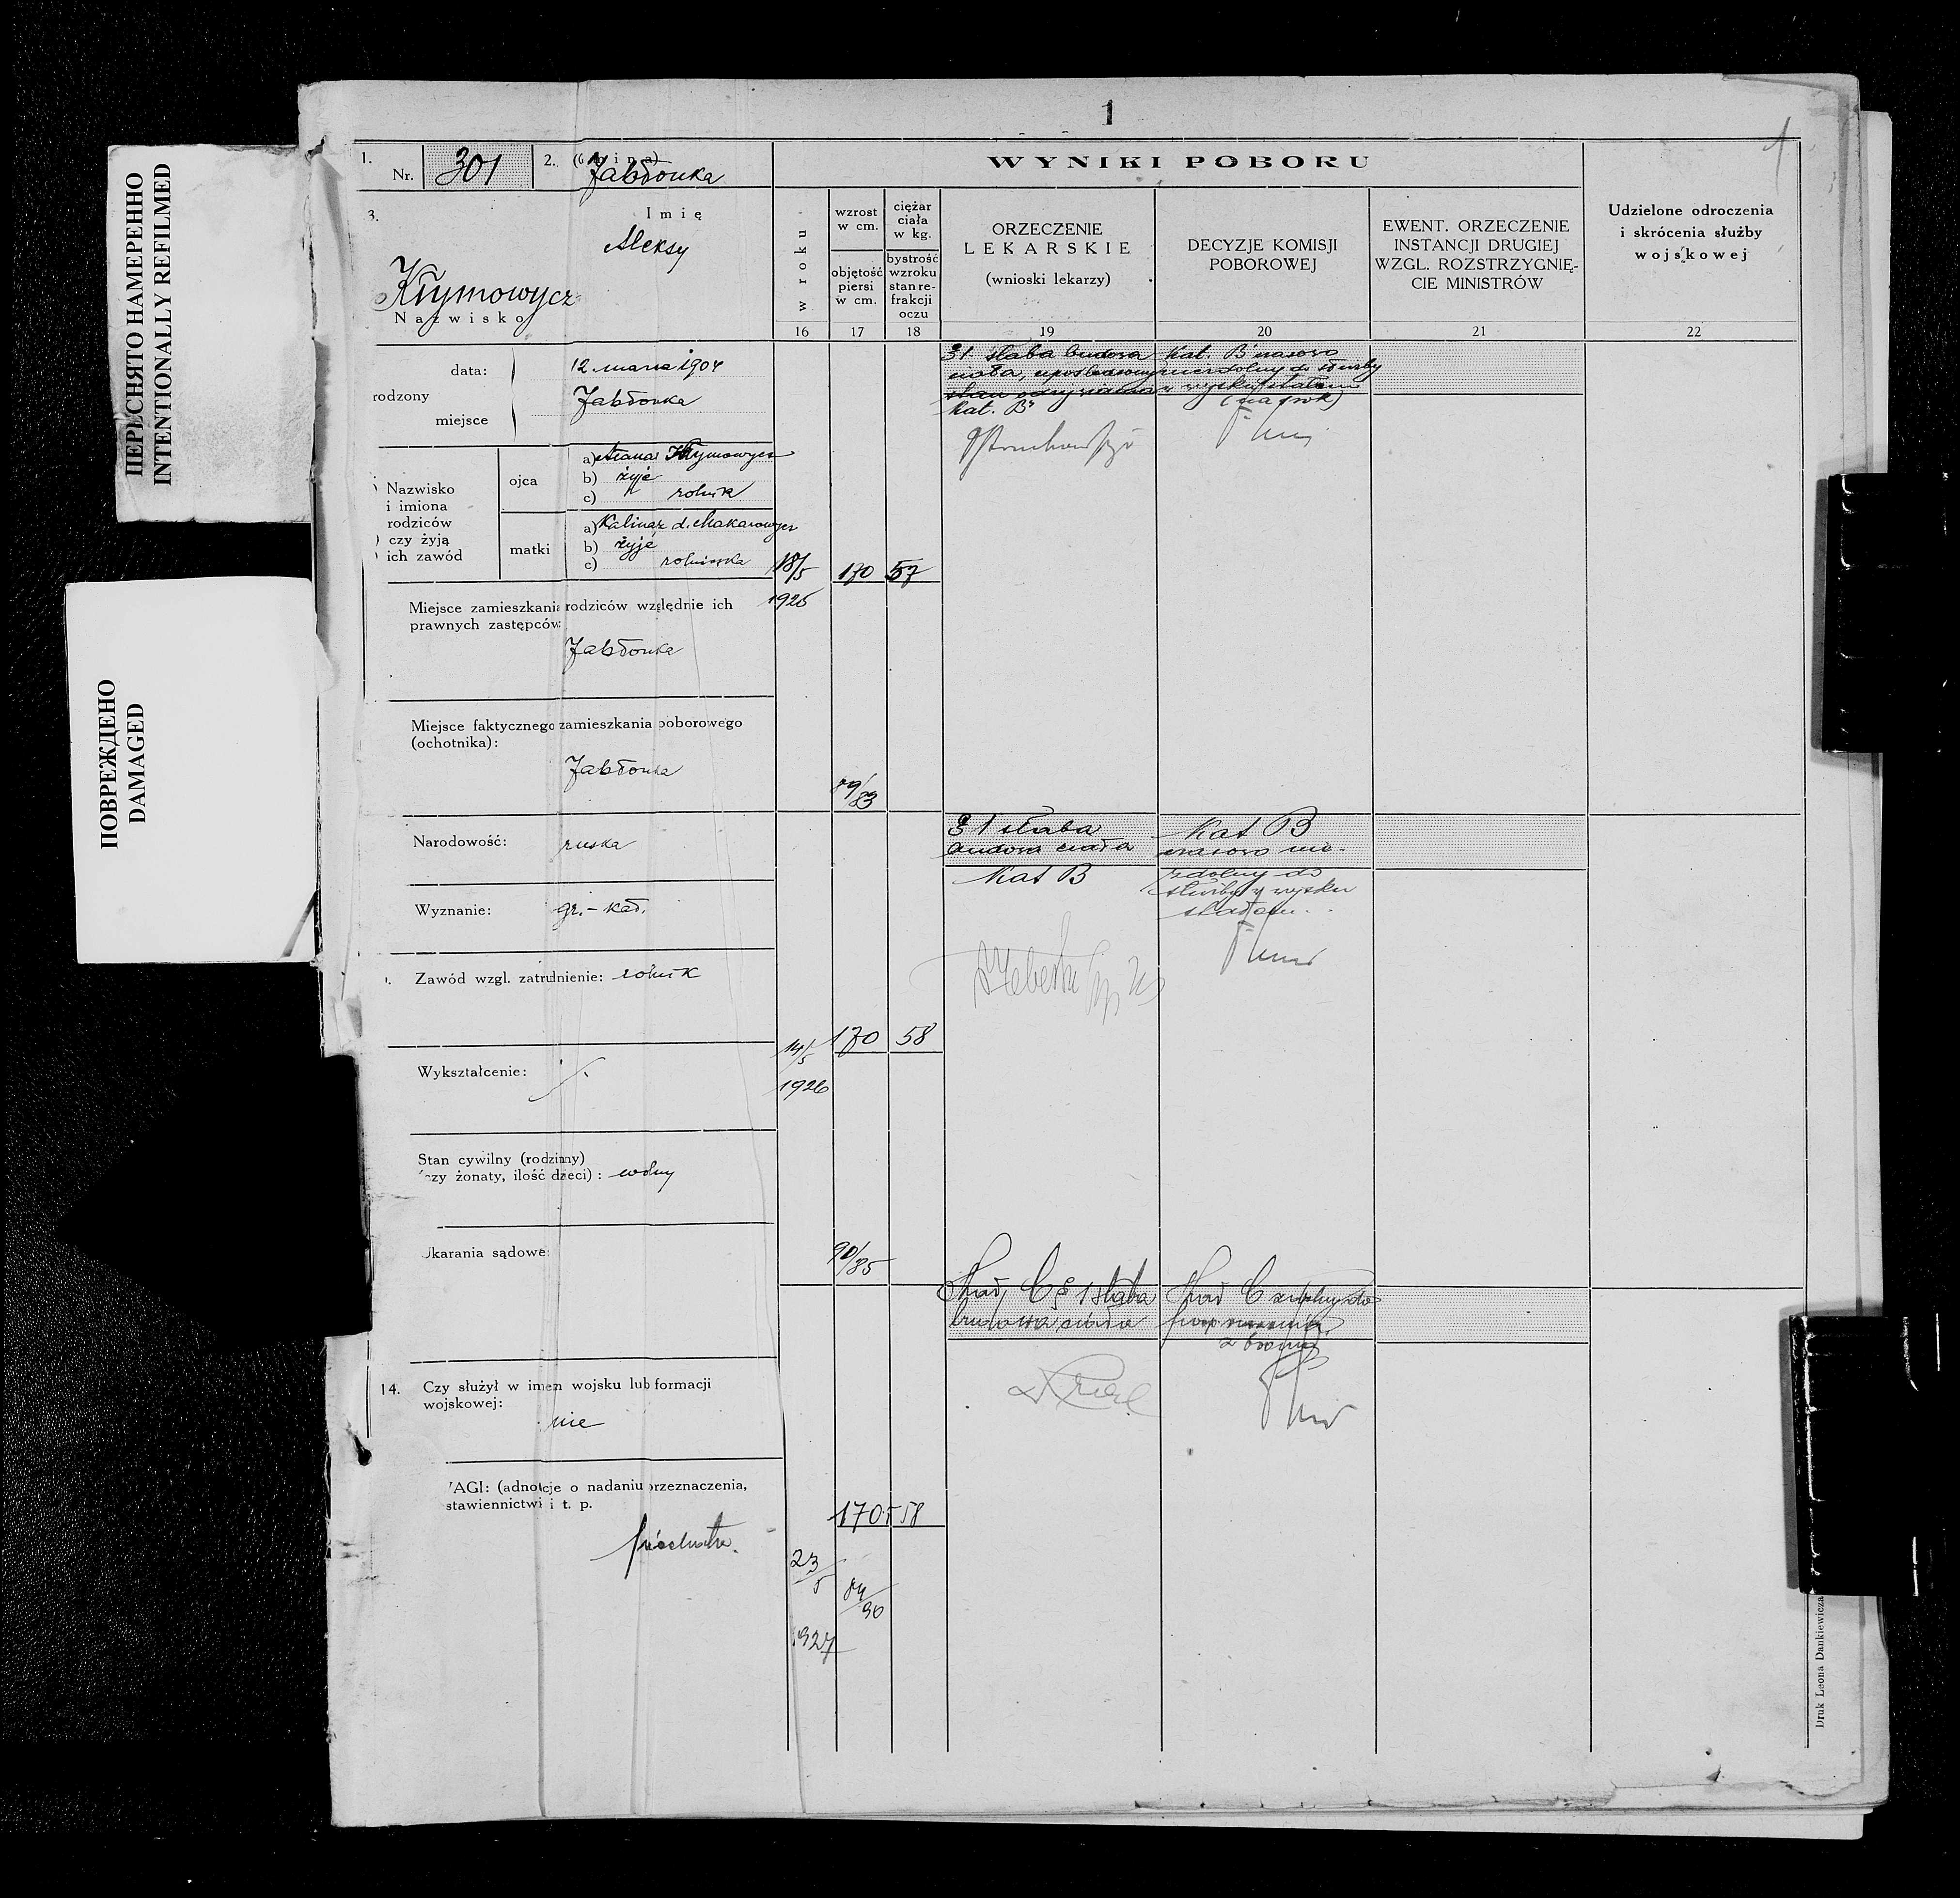 ПЕРЕСНЯТО НАМЕРЕННО
INTENTIONALLY REFILMED
ПОВРЕЖДЕНО
DAMAGED
1
1.
Nr. 301
2. (Gmina)
Jabłonka
3.
Imię
Aleksy
Kłymowycz
Nazwisko
WYNIKI POBORU
w roku
wzrost
w cm.
objętość
piersi
w cm.
ciężar
ciała
w kg.
bystrość
wzroku
stan re-
frakcji
oczu
ORZECZENIE
LEKARSKIE
(wnioski lekarzy)
DECYZJE KOMISJI
POBOROWEJ
EWENT. ORZECZENIE
INSTANCJI DRUGIEJ
WZGL. ROZSTRZYGNIĘ-
CIE MINISTRÓW
Udzielone odroczenia
i skrócenia służby
wojskowej
16 17 18 19 20 21 22
data: 12 marca 1904
rodzony
Jabłonka
miejsce
Nazwisko
i imiona
rodziców
czy żyją
ich zawód
ojca
a) Kłymowycz
b) żyje
c) rolnik
matki
a) Kalina z d. Makarowycz
b) żyje
c) rolniczka
Miejsce zamieszkania rodziców względnie ich
prawnych zastępców:
Jabłonka
Miejsce faktycznego zamieszkania poborowego
(ochotnika):
Jabłonka
Narodowość: ruska
Wyznanie: gr.-kat.
Zawód wzgl. zatrudnienie: rolnik
Wykształcenie:
Stan cywilny (rodzimy)
czy żonaty, ilość dzieci) : wolny
Ukarania sądowe:
14. Czy służył w innem wojsku lub formacji
wojskowej:
nie
AGI: (adnotcje o nadaniu przeznaczenia,
stawiennictwi i t. p.
piechota.
18/5
1925
170 57
89/83
§1 słaba budowa
ciała, upośledzony
stan odżywiania
Kat. "B"
Kat. "B" czasowo
niezdolny do służby
w wojsku stałem
(na rok)
14/5
1926
170 58
90/85
§1 słaba
budowa ciała
Kat B
Kat B
czasowo nie-
zdolny do
służby w wojsku
stałem.
23/5
1927
170.5 58
84/90
C § 1 słaba
budowa ciała
C zdolny do
posp ruszenia
z bronią
Druk Leona Dankiewicza